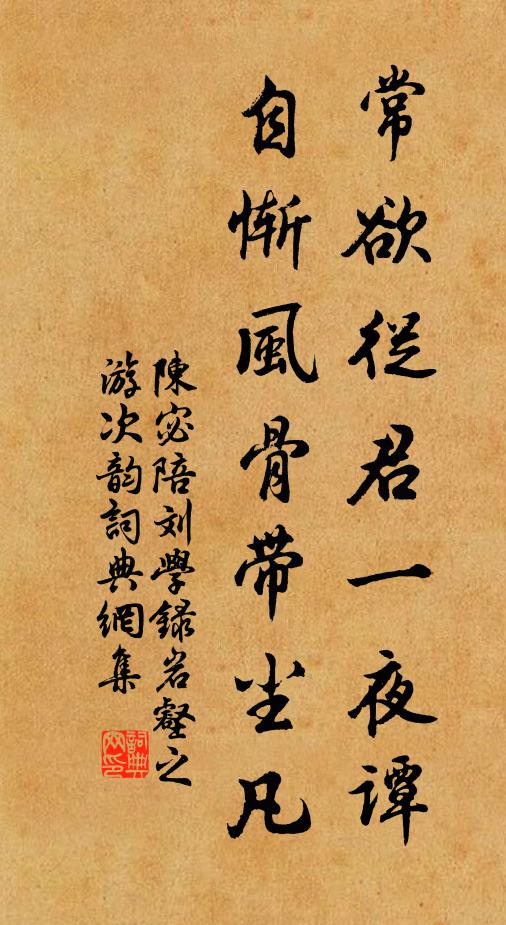 常欲從君一夜譚
自慚風骨帶尘凡
陳宓陪刘學録岩壑之
游次韵詞典網集
詞典網印